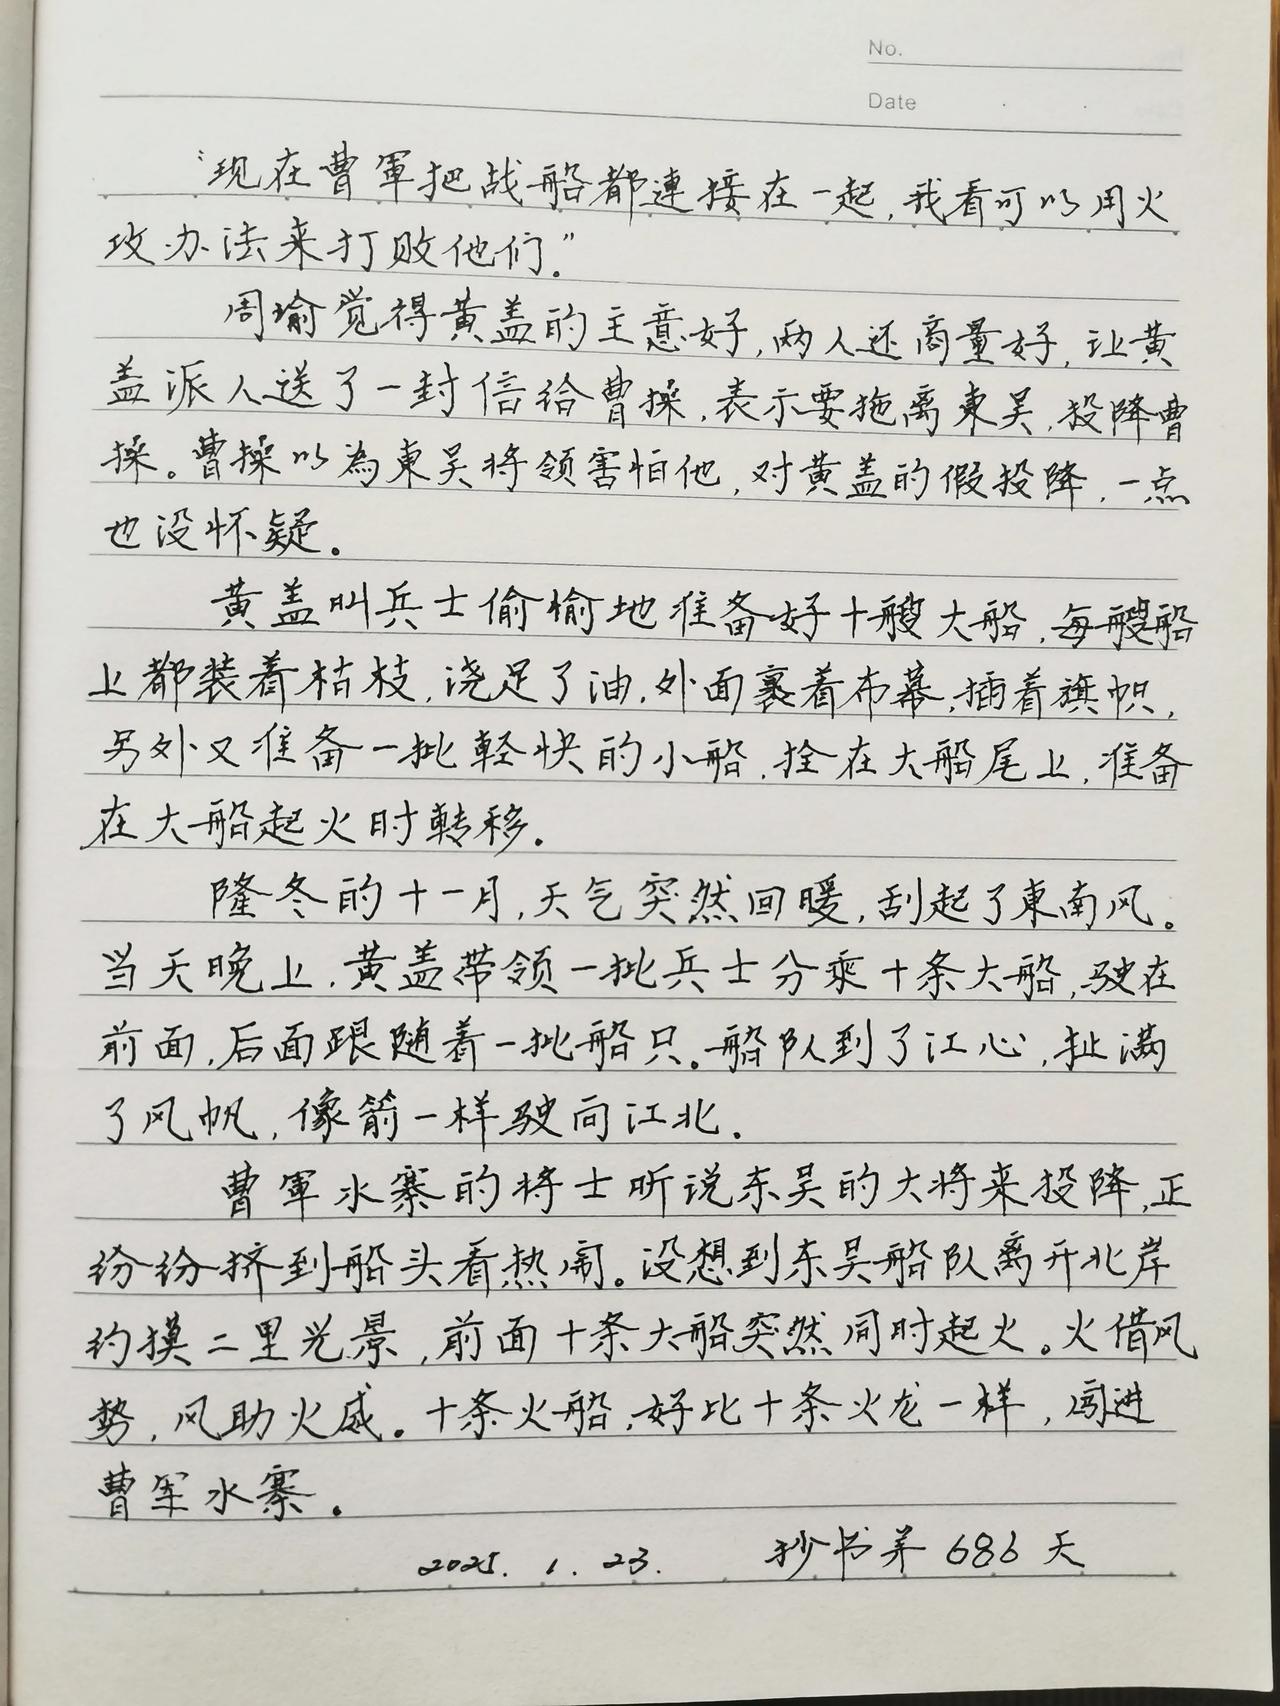 No.
Date
“现在曹軍把战船都連接在一起,我看可以用火
攻办法来打败他们。”
周瑜觉得黄盖的主意好,两人还商量好,让黄
盖派人送了一封信给曹操,表示要拖离東吴,投降曹
操。曹操以為東吴将领害怕他,对黄盖的假投降,一点
也没怀疑。
黄盖叫兵士偷偷地准备好十艘大船,每艘船
上都装着枯枝,浇足了油,外面裹着布幕,插着旗帜,
另外又准备一批軽快的小船,拴在大船尾上,准备
在大船起火时転移。
隆冬的十一月,天气突然回暖,刮起了東南风。
当天晚上,黄盖带领一批兵士分乘十条大船,驶在
前面,后面跟随着一批船只。船队到了江心,扯满
了风帆,像箭一样驶向江北。
曹軍水寨的将士听说东吴的大将来投降,正
纷纷挤到船头看热闹。没想到东吴船队离开北岸
约摸二里光景,前面十条大船突然同时起火。火借风
势,风助火威。十条火船,好比十条火龙一样,闯进
曹军水寨。
2025.1.23. 抄书第686天